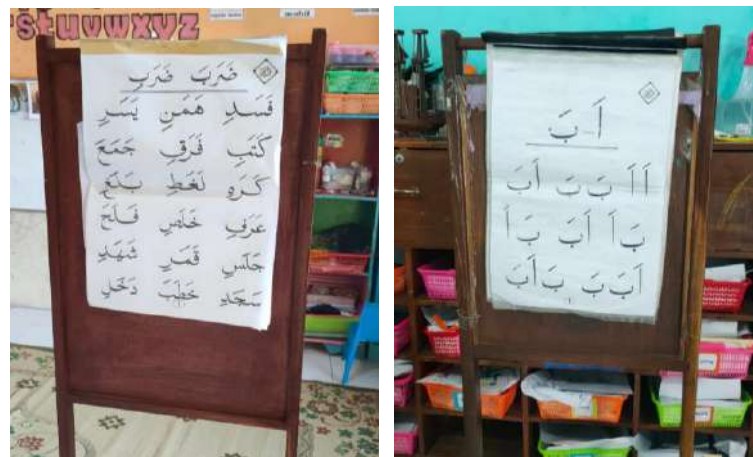 stuvwxyz
ضَرَبَ ضَرَبِ
فَسَدِ هَمَنِ يَسَرِ
كَتَبِ فَرَقِ جَمَعَ
كَرَهِ لَغَطِ بَلَغَ
عَرَفِ خَلَصِ فَلَحَ
جَلَسِ قَمَرِ شَهَدِ
سَجَدِ خَطَبَ دَخَلِ
أَ - بَ
أَ أَ بَ بَ أَ بَ
بَ أَ أَ بَ بَ أَ
أَ بَ بَ بَ أَ بَ
١